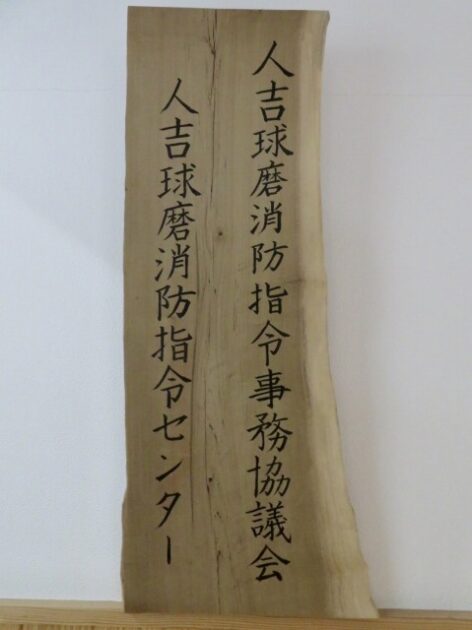 人吉球磨消防指令事務協議会
人吉球磨消防指令センター